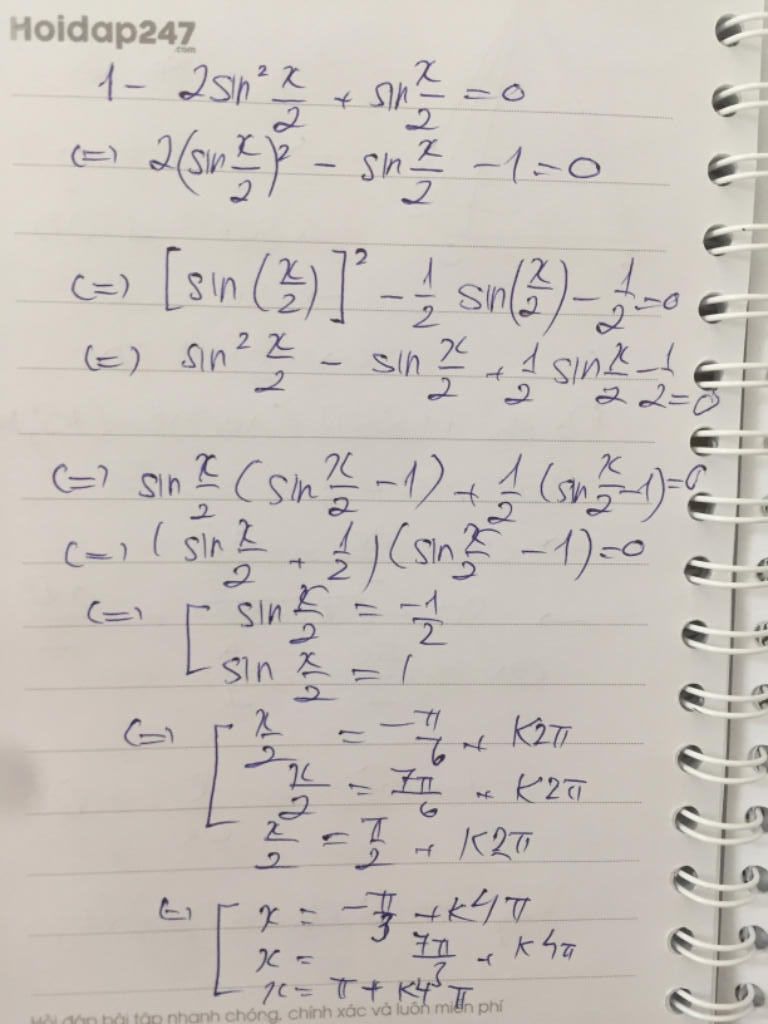 Hoidap247
.com
1 - 2sin² x/2 + sin x/2 = 0
(=) 2(sin x/2)² - sin x/2 - 1 = 0
(=) [sin (x/2)]² - 1/2 sin(x/2) - 1/2 = 0
(=) sin² x/2 - sin x/2 + 1/2 sin x/2 - 1/2 = 0
(=) sin x/2 (sin x/2 - 1) + 1/2 (sin x/2 - 1) = 0
(=) (sin x/2 + 1/2) (sin x/2 - 1) = 0
(=) [ sin x/2 = -1/2
sin x/2 = 1
(=) [ x/2 = -π/6 + K2π
x/2 = 7π/6 + K2π
x/2 = π/2 + K2π
(=) [ x = -π/3 + K4π
x = 7π/3 + K4π
x = π + K4π
Hỏi đáp bài tập nhanh chóng, chính xác và luôn miễn phí